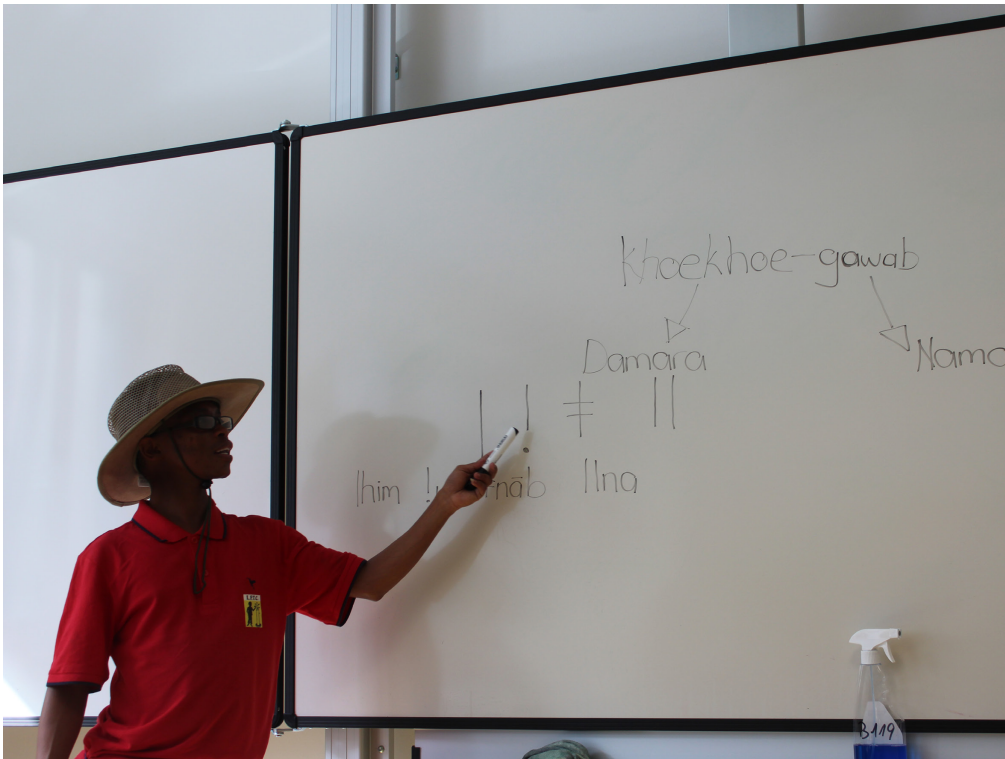 Khoekhoe-gawab
Damara Nama
ǀ ! ǂ ǁ
ǀhim ǂnāb ǁna
B119